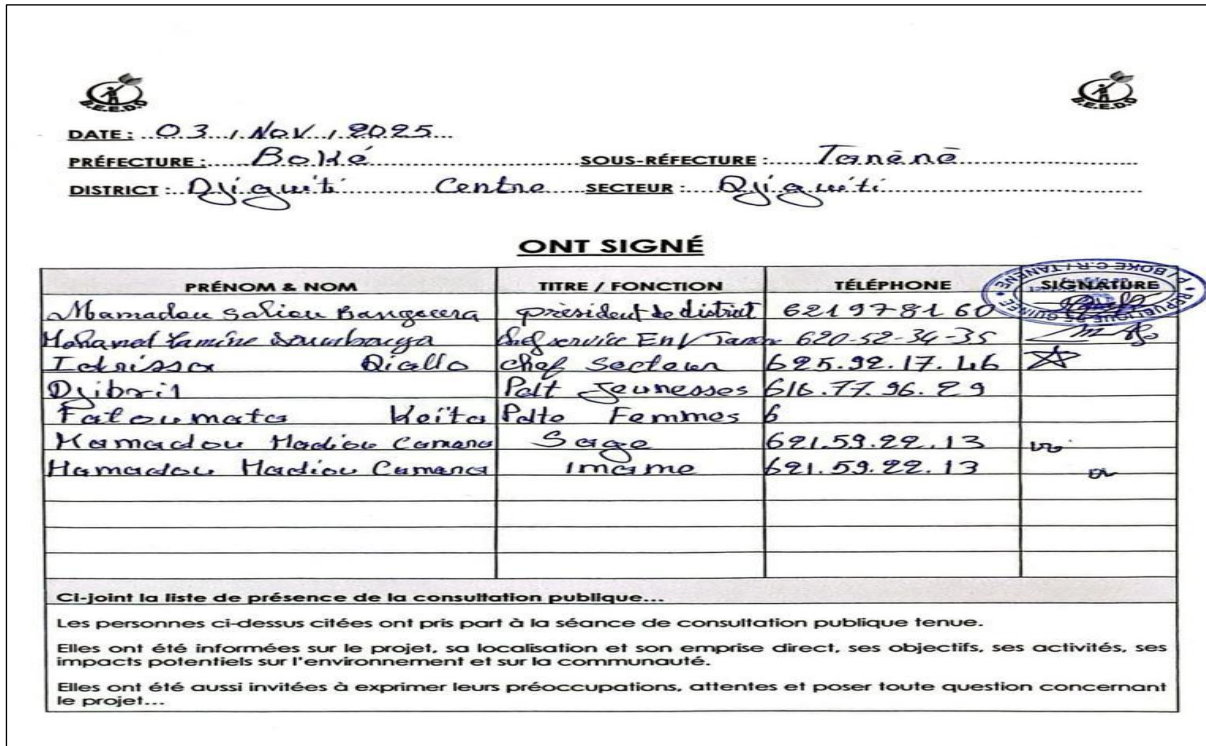 Z.E.E.D.D
Z.E.E.D.D
DATE : 03 / Nov / 2025
PRÉFECTURE : Boké SOUS-RÉFECTURE : Tanènè
DISTRICT : Djiguiti Centre SECTEUR : Djiguiti
ONT SIGNÉ
PRÉNOM & NOM TITRE / FONCTION TÉLÉPHONE SIGNATURE
REPUBLIQUE DE GUINEE P/ BOKE C.R / TANENE
Mamadou Saliou Bangoura président de district 621978160
Mohamed Lamine chef service Env 620-52-34-35
Idrissa Diallo chef Secteur 625.92.17.46
Djibril Pdt Jeunesses 616.77.96.29
Fatoumata Keïta Pdte Femmes 6
Mamadou Madiou Camara Sage 621.59.22.13
Mamadou Madiou Camara Imame 621.59.22.13
Ci-joint la liste de présence de la consultation publique...
Les personnes ci-dessus citées ont pris part à la séance de consultation publique tenue.
Elles ont été informées sur le projet, sa localisation et son emprise direct, ses objectifs, ses activités, ses
impacts potentiels sur l'environnement et sur la communauté.
Elles ont été aussi invitées à exprimer leurs préoccupations, attentes et poser toute question concernant
le projet...